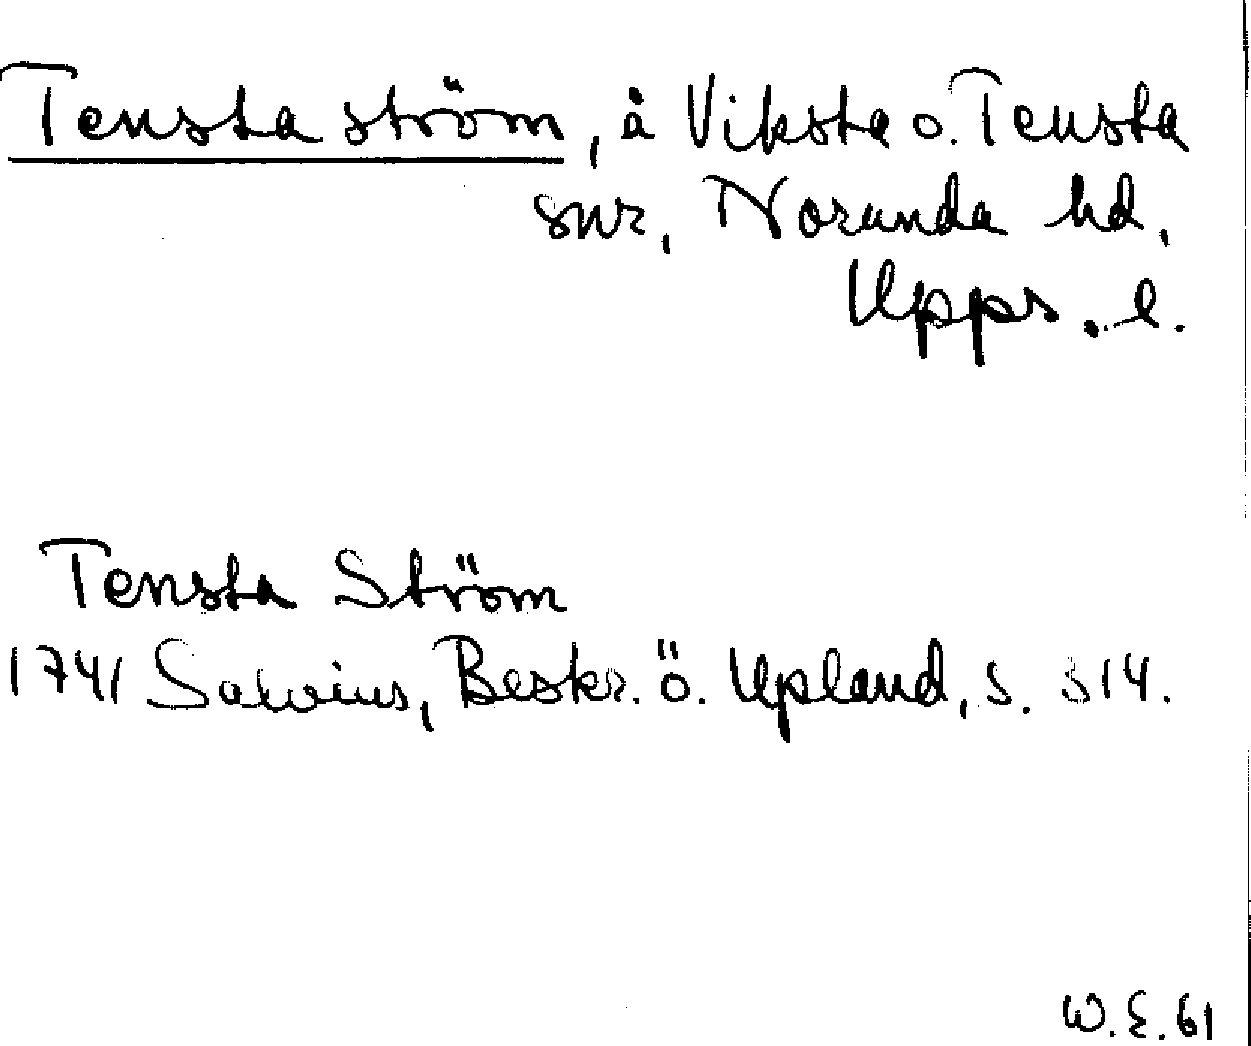 Tensta ström, å Viksta o. Tensta
snr, Norunda hd,
Upps. l.
Tensta Ström
1741 Salvius, Beskr. ö. Upland, s. 314.
W. E. 61